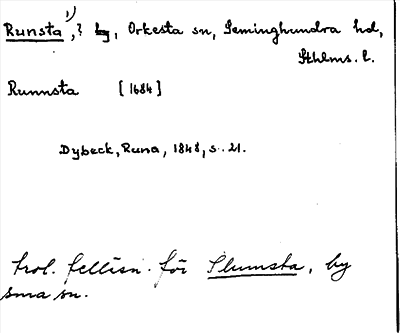 Runsta 1), ? by, Orkesta sn, Seminghundra hd,
Sthlms. l.
Runnsta [1684]
Dybeck, Runa, 1848, s. 21.
trol. fellisn. för Slumsta, by
sma sn.